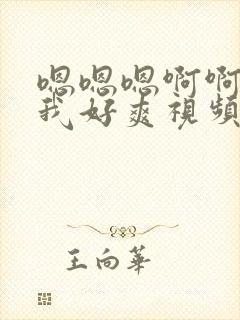 嗯嗯嗯啊啊
我好爽視頻
王向華